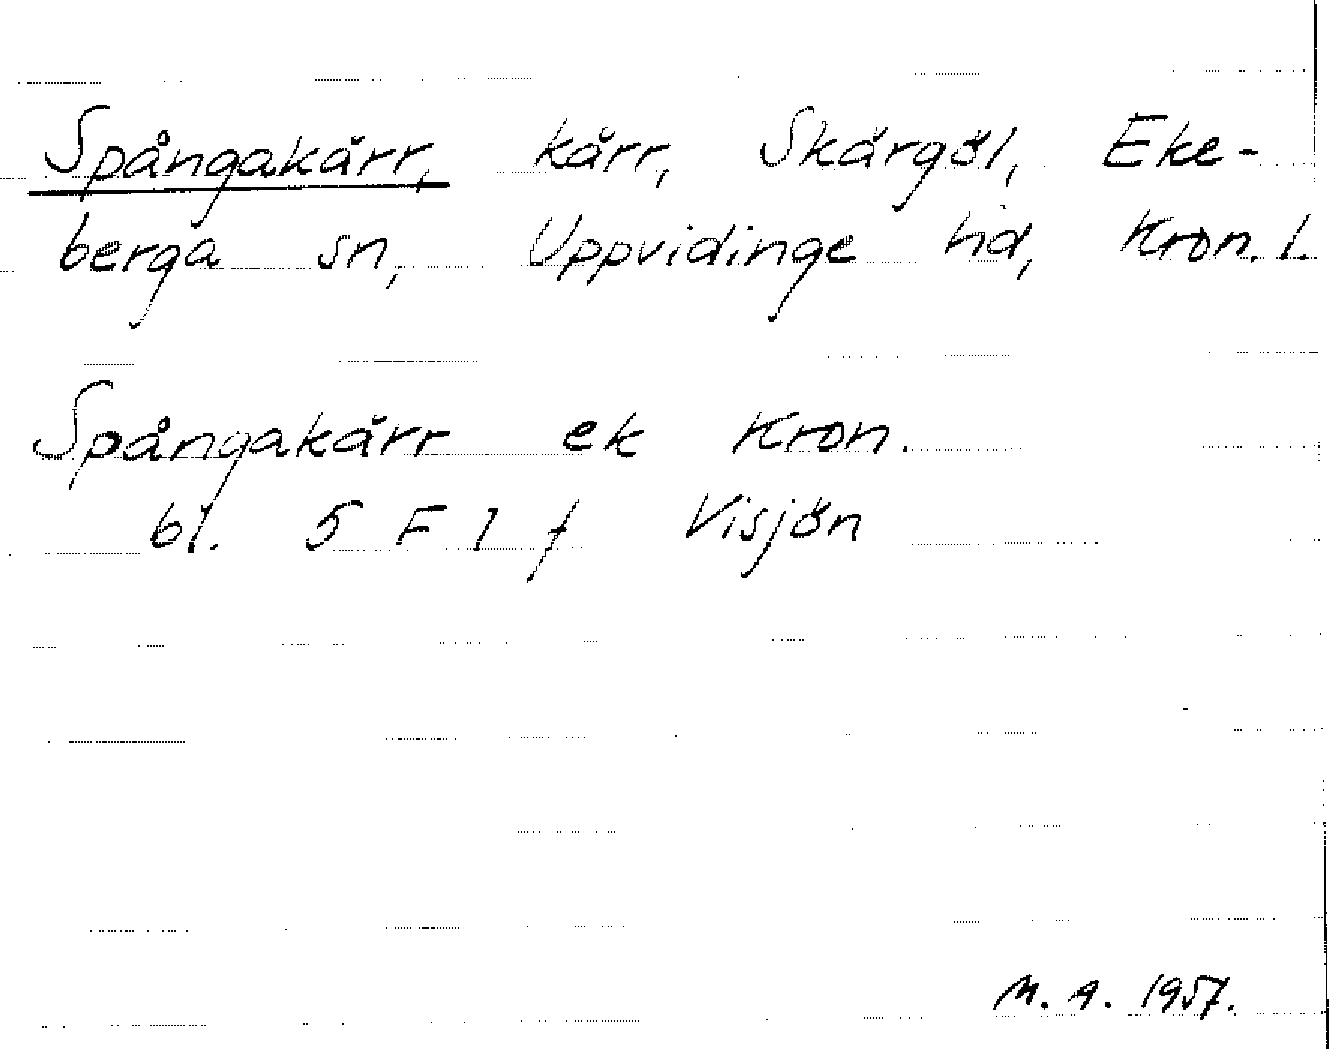 Spångakärr, kärr, Skärgöl, Eke-
berga sn, Uppvidinge hd, Kron. l.
Spångakärr ek Kron.
bl. 5 F 1 f Visjön
M. A. 1957.